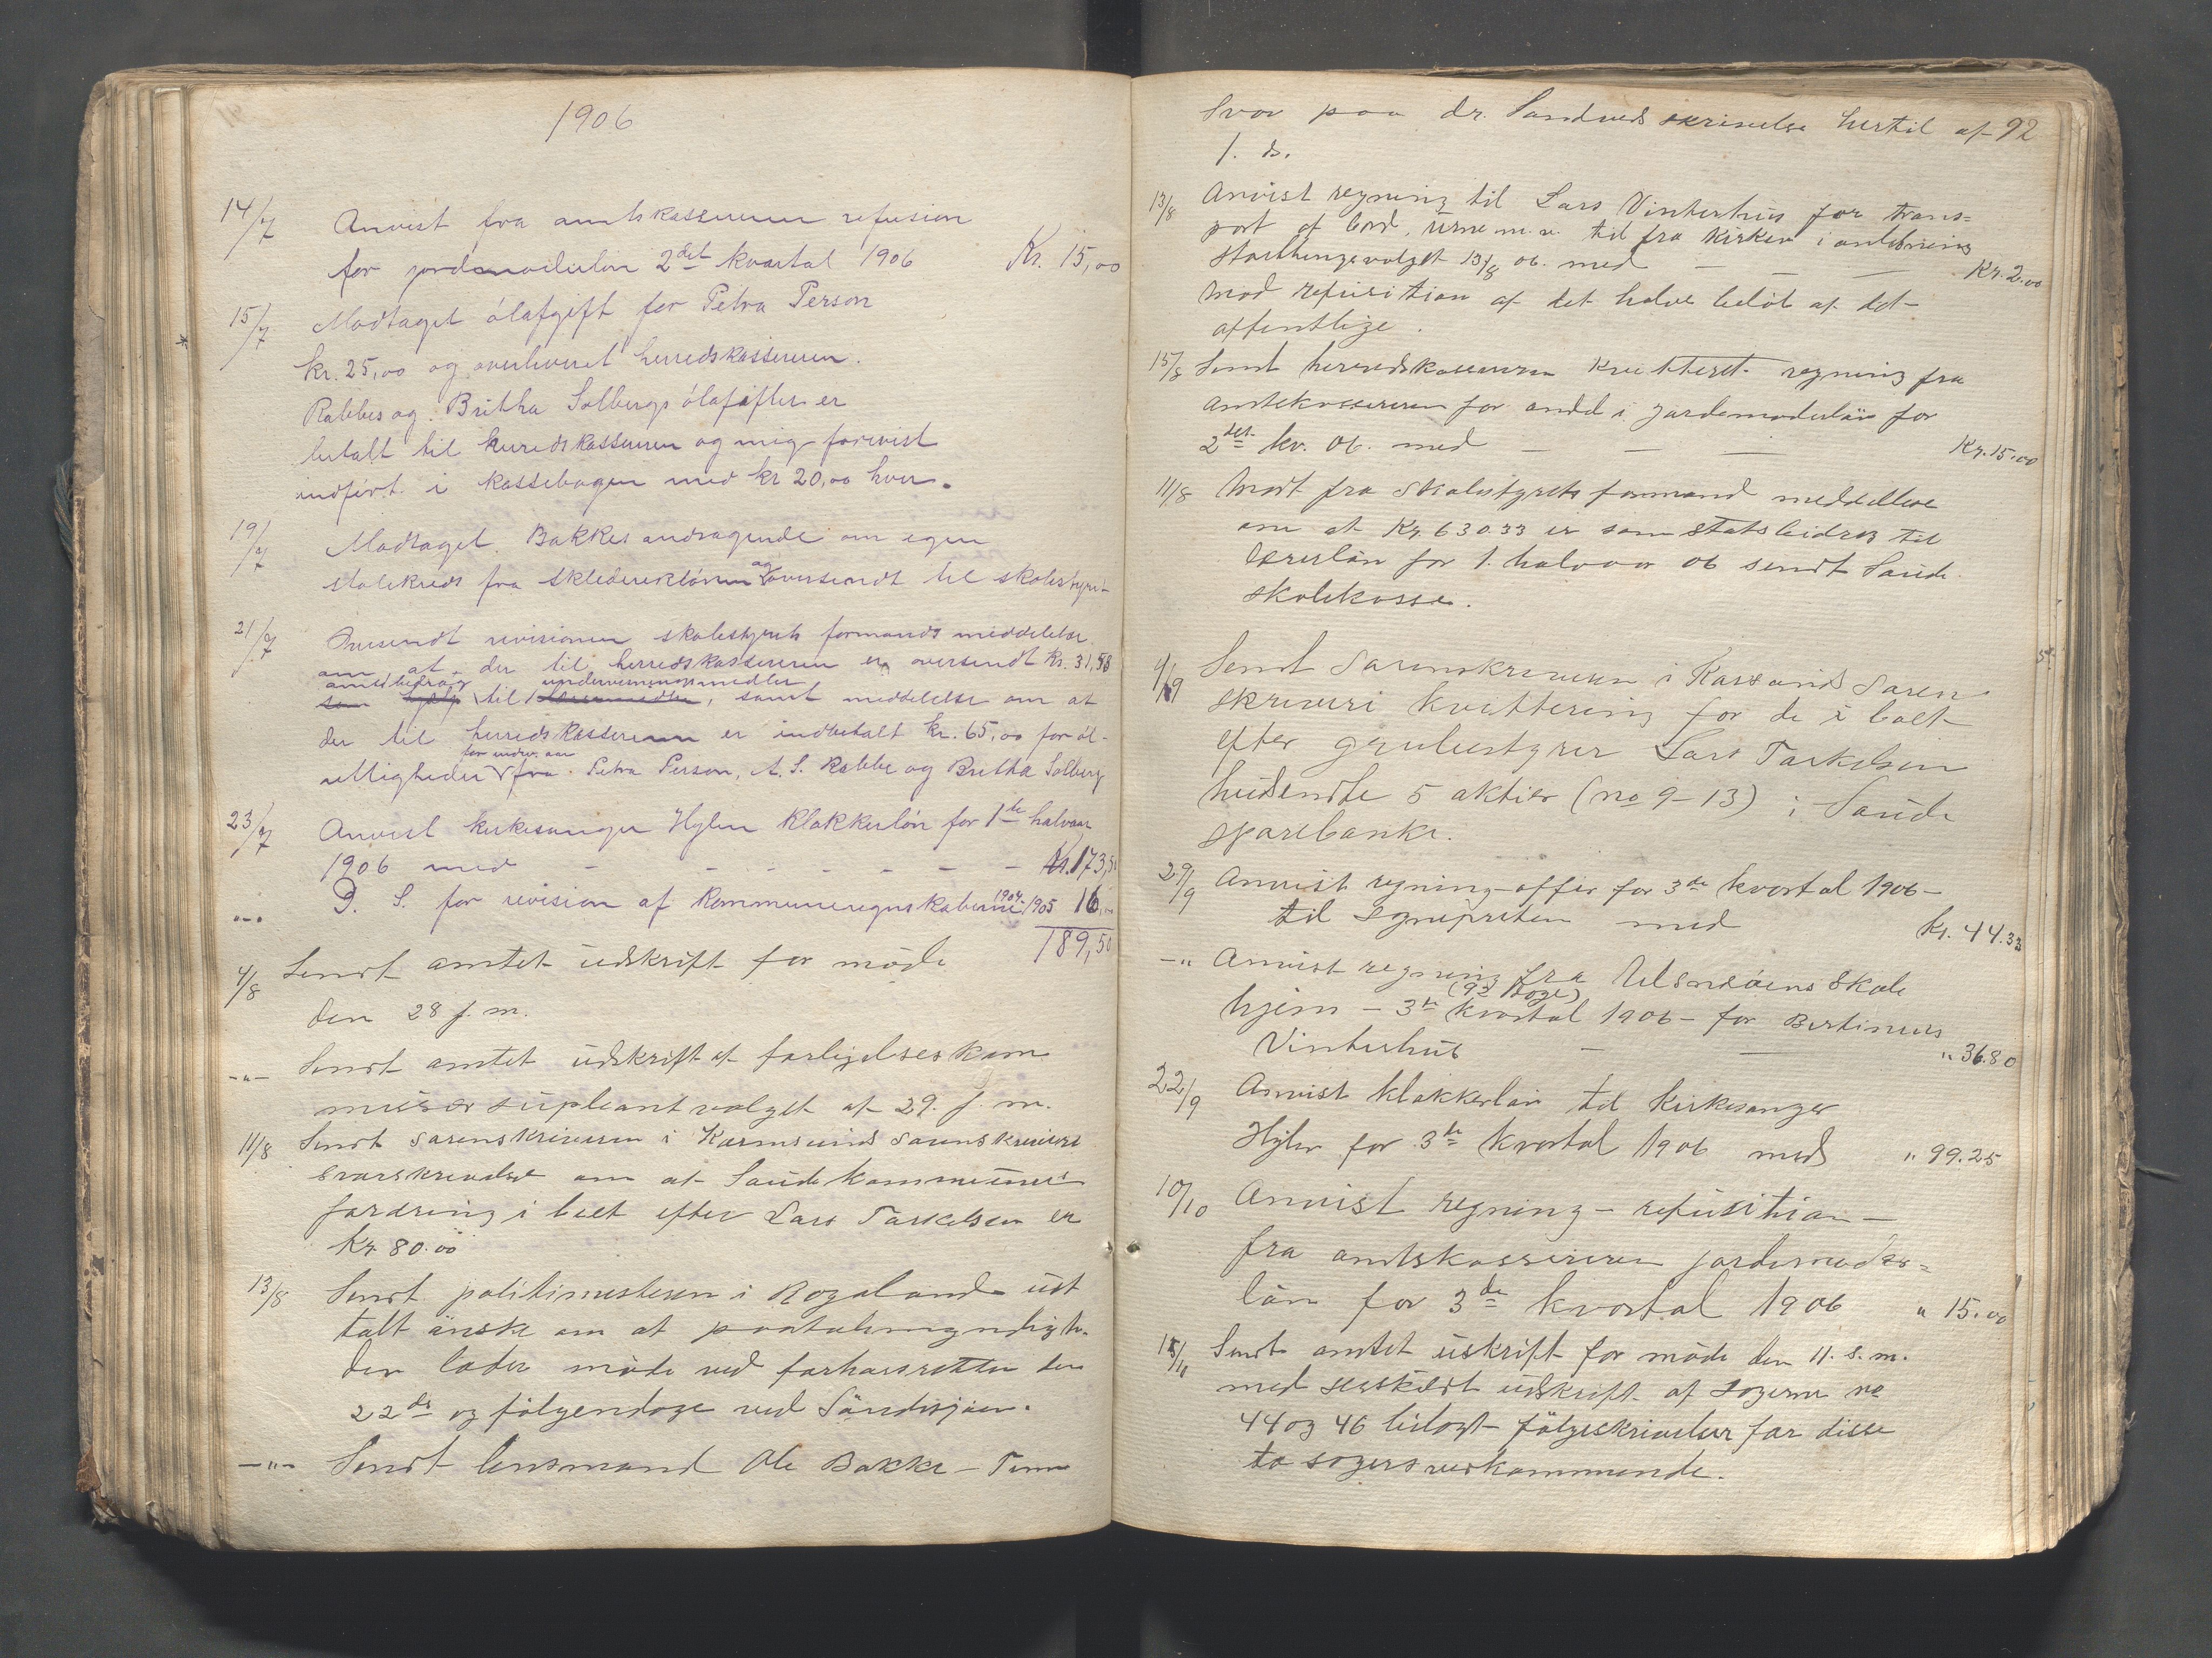 1906
14/7 Anvist fra amtskassereren refusion
for jordmoderløn 2det kvartal 1906 Kr. 15,00
15/7 Modtaget ölafgift for Petra Person
kr. 25,00 og overleveret herredskassereren.
Rabbes og Britha Solbergs ölafgifter er
betalt til herredskassereren og mig forevist
indført i kassebogen med kr 20,00 hver.
19/7 Modtaget Bakkes andragende om egen
skolekreds fra skoledirektøren og oversendt til skolestyret
21/7 Oversendt revisionen skolestyrets formands meddelelse
om at der til herredskassereren er oversendt Kr. 31,58
amtsbidrag undervisningsmedler
som til, samt meddelelse om at
der til herredskassereren er indbetalt kr. 65,00 for öl-
for indev. aar
rettigheder fra Petra Person, A. S. Rabbe og Britha Solberg
23/7 Anvist kirkesanger Hylen klokkerløn for 1ste halvaar
1906 med - - - - - - Kr. 173,50
-"- D. S. for revision af kommuneregnskaberne 1904-1905 16,00
189,50
4/8 Sendt amtet udskrift for möde
den 28 f. m.
-"- Sendt amtet udskrift af forligelseskom
missær supleantvalget af 29. f. m.
11/8 Sendt sorenskriveren i Karmsund sorenskriveri
svarskrivelse om at Saude kommunes
fordring i boet efter Lars Torkelsen er
Kr. 80.00
13/8 Sendt politimesteren i Rogaland ud
talt önske om at paatalemyndighe-
den lader möde ved forhørsretten den
22de og fölgendage ved Söndesjøen.
-"- Sendt lensmand Ole Bakke - Tom
Svar paa dr. Sandveds skrivelse hertil af 92
1. ds.
13/8 Anvist regning til Lars Vinterhus for trans-
port af bord, urne m. v. til fra kirken i anledning
storthingsvalget 13/8 06. med — — — Kr. 2.00
mod refusition af det halve belöb af det
offentlige.
15/8 Sendt herredskassereren kvitteret regning fra
amtskassereren for andel i jordemoderlön for
2det kv. 06. med — — — Kr. 15.00
11/8 Modt fra skolestyrets formand meddelelse
om at Kr. 630.33 er som statsbidrag til
lærerlön for 1. halvaar 06 sendt Saude
skolekasse.
4/9 Sendt Sorenskriveren i Karmsund Soren
skriveri kvittering for de i boet
efter grubestyrer Lars Torkelsen
hidsendte 5 aktier (no 9-13) i Saude
sparebank.
29/9 Anvist regning - offer for 3die kvartal 1906 -
til sognepresten med Kr. 44.33
-"- Anvist regning fra Ulsnesöens Skole
(92 dage)
hjem - 3die kvartal 1906 - for Bertinius
Vinterhus — — " 36.80
22/9 Anvist klokkerlön til kirkesanger
Hylen for 3die kvartal 1906 med " 99.25
10/10 Anvist regning - refusition -
fra amtskassereren jordemoder=
lön for 3die kvartal 1906 " 15.00
15/10 Sendt amtet udskrift for möde den 11. d. m.
med særskildt udskrift af sagerne no
44 og 46 bilagt fölgeskrivelser for disse
to sagers vedkommende.